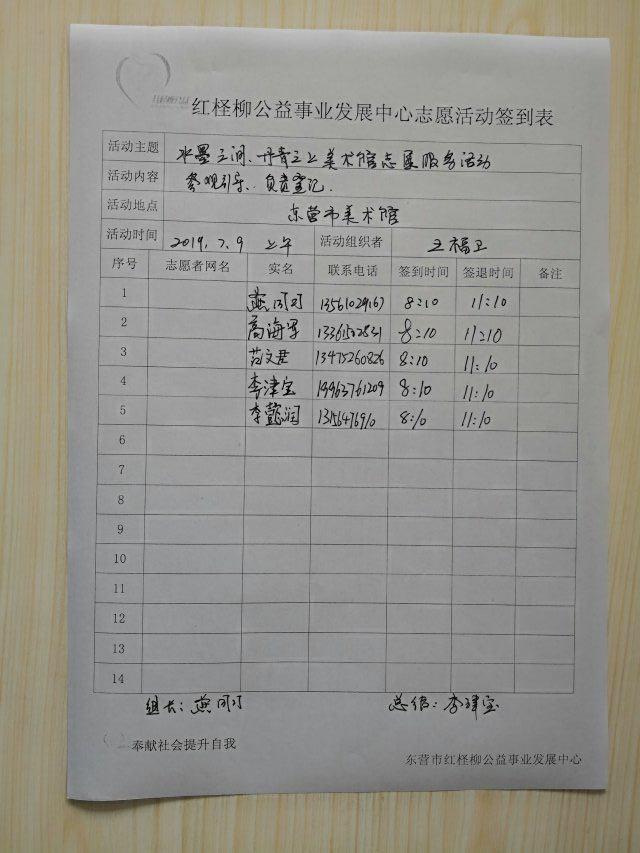 红柽柳公益事业发展中心志愿活动签到表
活动主题 水墨之间、丹青之上美术馆志愿服务活动
活动内容 参观引导、负责登记.
活动地点 东营市美术馆
活动时间 2019.7.9 上午 活动组织者 王福卫
序号 志愿者网名 实名 联系电话 签到时间 签退时间 备注
1 燕 13561029167 8:10 11:10
2 高海军 8:10 11:10
3 苟文君 13475260826 8:10 11:10
4 李津宝 19963761209 8:10 11:10
5 李懿润 1315647690 8:10 11:10
6
7
8
9
10
11
12
13
14
组长:燕 总结:李津宝
奉献社会提升自我
东营市红柽柳公益事业发展中心